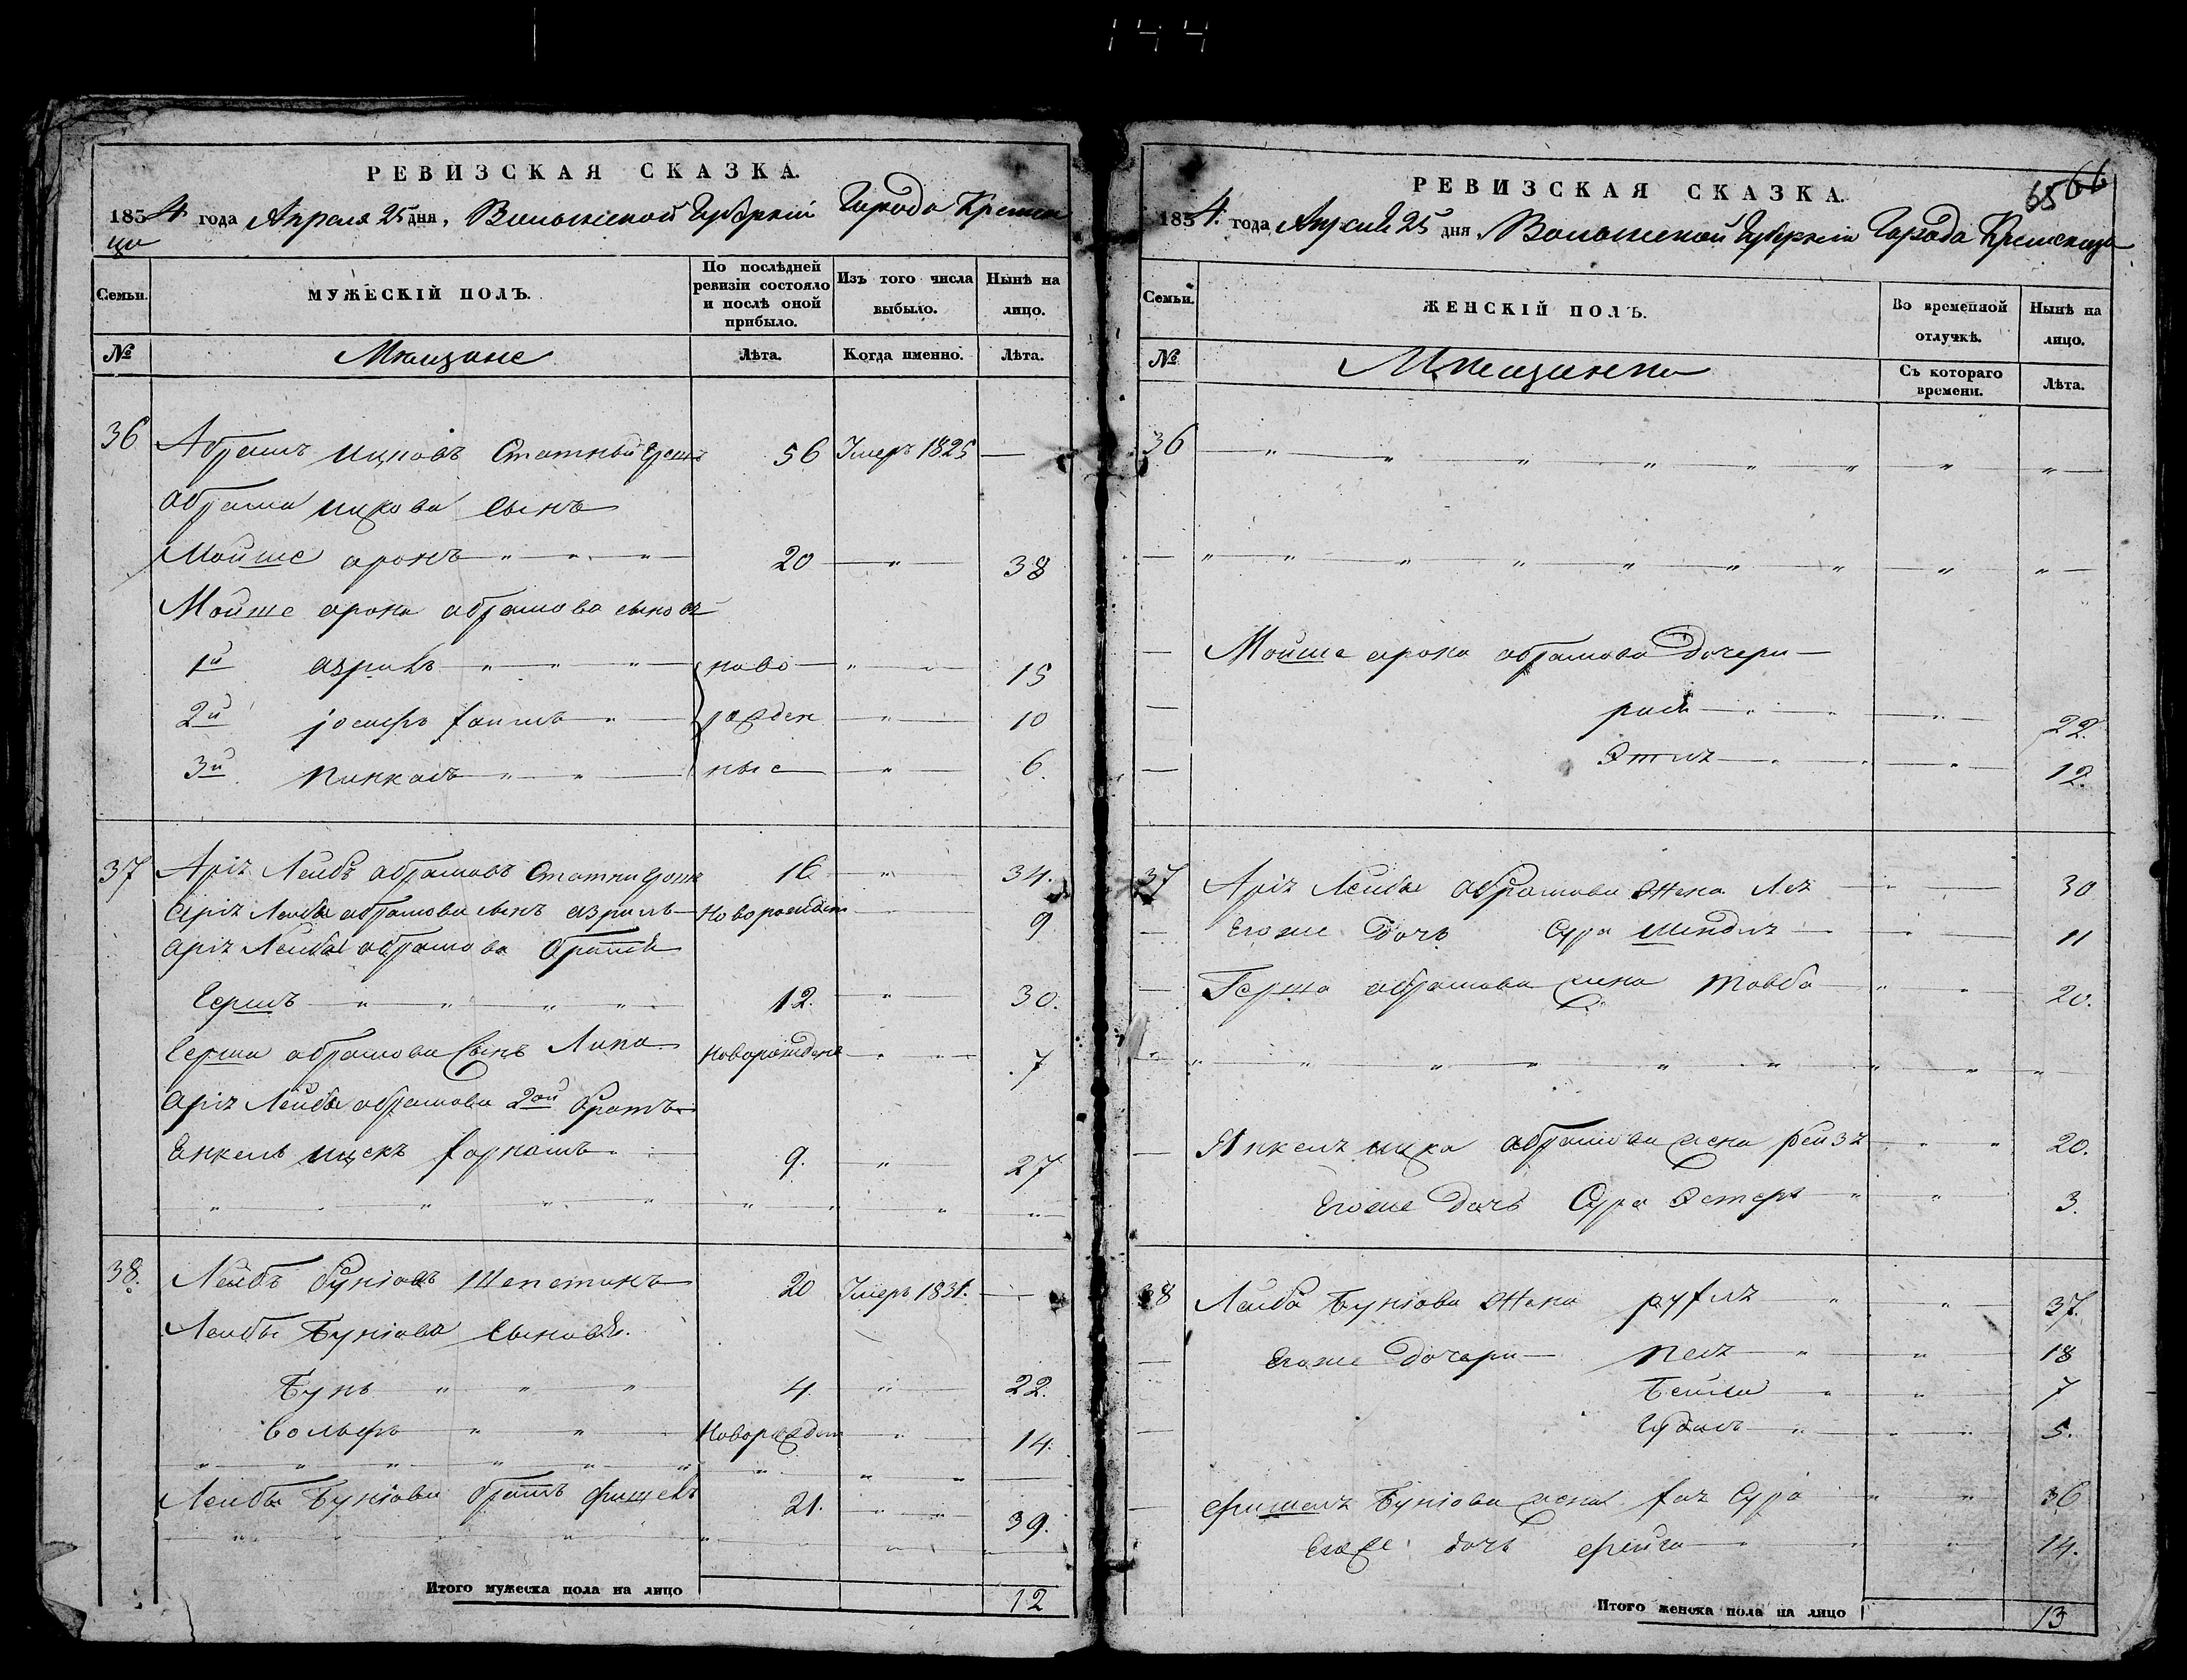 144
РЕВИЗСКАЯ СКАЗКА.
1854 года Апреля 25 дня, Волынской Губерніи Города Кремен
ца
Семьи. МУЖЕСКІЙ ПОЛЪ. По послѣдней ревизіи состояло и послѣ оной прибыло. Изъ того числа выбыло. Нынѣ на лицо.
№ Мѣщане Лѣта. Когда именно. Лѣта.
36 Абрамъ Ицковъ 56 Умеръ 1825 —
Абрама Ицкова сынъ
Мойше аронъ 20 — 38
Мойше арона абрамова сыновя
1й азриль ново 15
2й іосифъ хаимъ рожден 10
3й пинкасъ ные 6.
37 Аріе Лейбъ абрамовъ 16 34.
Аріе Лейбы абрамова сынъ азриль Новорожден 9
аріе Лейбы абрамова братья
Гершъ 12. 30.
Герша абрамова сынъ Липа Новорожден 7
аріе Лейбы абрамова 2ой братъ
Енкель ицекъ 9. 27
38. Лейбъ Буніовъ Шепетинъ 20 Умеръ 1831.
Лейбы Буніова сыновя.
Бунь 4 22.
Вольфъ Новорожден 14.
Лейбы Буніова братъ Фишель 21. 39.
Итого мужеска пола на лицо 12
65 66
РЕВИЗСКАЯ СКАЗКА.
1854. года Апреля 25 дня, Волынской Губерніи Города Кременца
Семьи. ЖЕНСКІЙ ПОЛЪ. Во временной отлучкѣ. Нынѣ на лицо.
№ Мѣщанки Съ котораго времени. Лѣта.
36
Мойше арона абрамова дочери
22.
Этля 12.
37 Аріе Лейбы абрамова жена Лея 30
Егоже дочь Сура Шендля 11
Герша абрамова жена Товба 20.
Янкеля ицка абрамова жена рейзя 20.
Егоже дочь Сура Эстеръ 3.
38 Лейба Буніова жена рухля 37.
Егоже дочери песя 18
Бейла 7
5.
Фишеля Буніова жена хая Сура 36
Егоже дочь фейга 14.
Итого женска пола на лицо 13